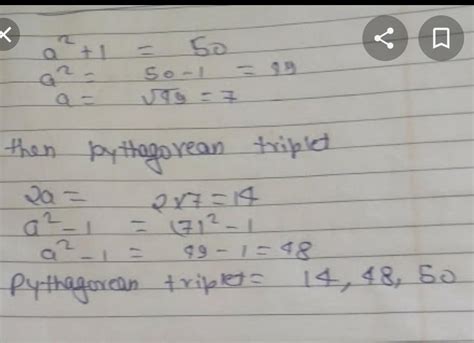 a² + 1 = 50
a² = 50 - 1 = 49
a = √49 = 7
then pythagorean triplet
2a = 2x7 = 14
a² - 1 = (7)² - 1
a² - 1 = 49 - 1 = 48
Pythagorean triplet = 14, 48, 50